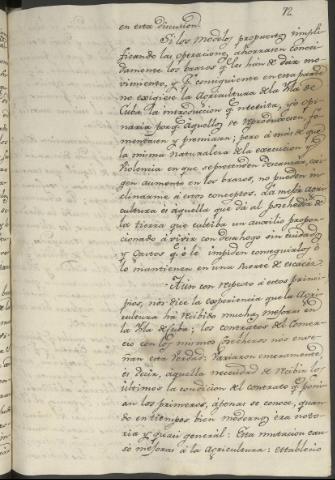 12
en esta discusion.
Si los Modelos propuestos simpli-
ficando las operaciones ahorrasen conoci-
damente los brazos q.e les han de dar mo-
vimiento, y p.r consiguiente en esta parte
no exigiese la Agricultura de la Ysla de
Cuba la introduccion q.e necesita, yo opi-
naria porq.e aquellos se reprodugesen, fo-
mentasen y premiasen; pero á mas de que
la misma naturaleza de la execucion y
violencia en que se pretenden
gen aumento en los brazos, no pueden in-
clinarme á estos conceptos. La mejor agri-
cultura es aquella que dá al poseedor de
la tierra que cultiba un auxilio propor-
cionado á vivir con desahogo sin cuidados
y Gastos q.e ó le impiden conseguirlo, ó
lo mantienen en una suerte de escasez.
Aun con respecto á estos princi-
pios, nos dice la experiencia que la Agri-
cultura há recibido muchas mejoras en
la Ysla de Cuba; los contratos del Comer-
cio con los mismos nos ense-
ñan esta verdad: Variaron enteramente
es decir, aquella necesidad de recibir los
ultimos la condicion del contrato q.e poni-
an los primeros, apenas se conoce, quan-
do en tiempos bien modernos era noto-
ria y quasi general: Esta mutacion cau-
só mejoras á la Agricultura: establecio